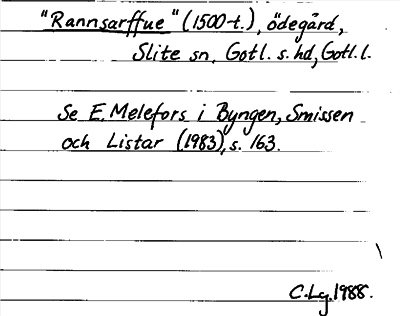 "Rannsarffue" (1500-t.), ödegård,
Slite sn, Gotl. s. hd, Gotl. l.
Se E. Melefors i Byngen, Smissen
och Listar (1983), s. 163.
C. Lg. 1988.